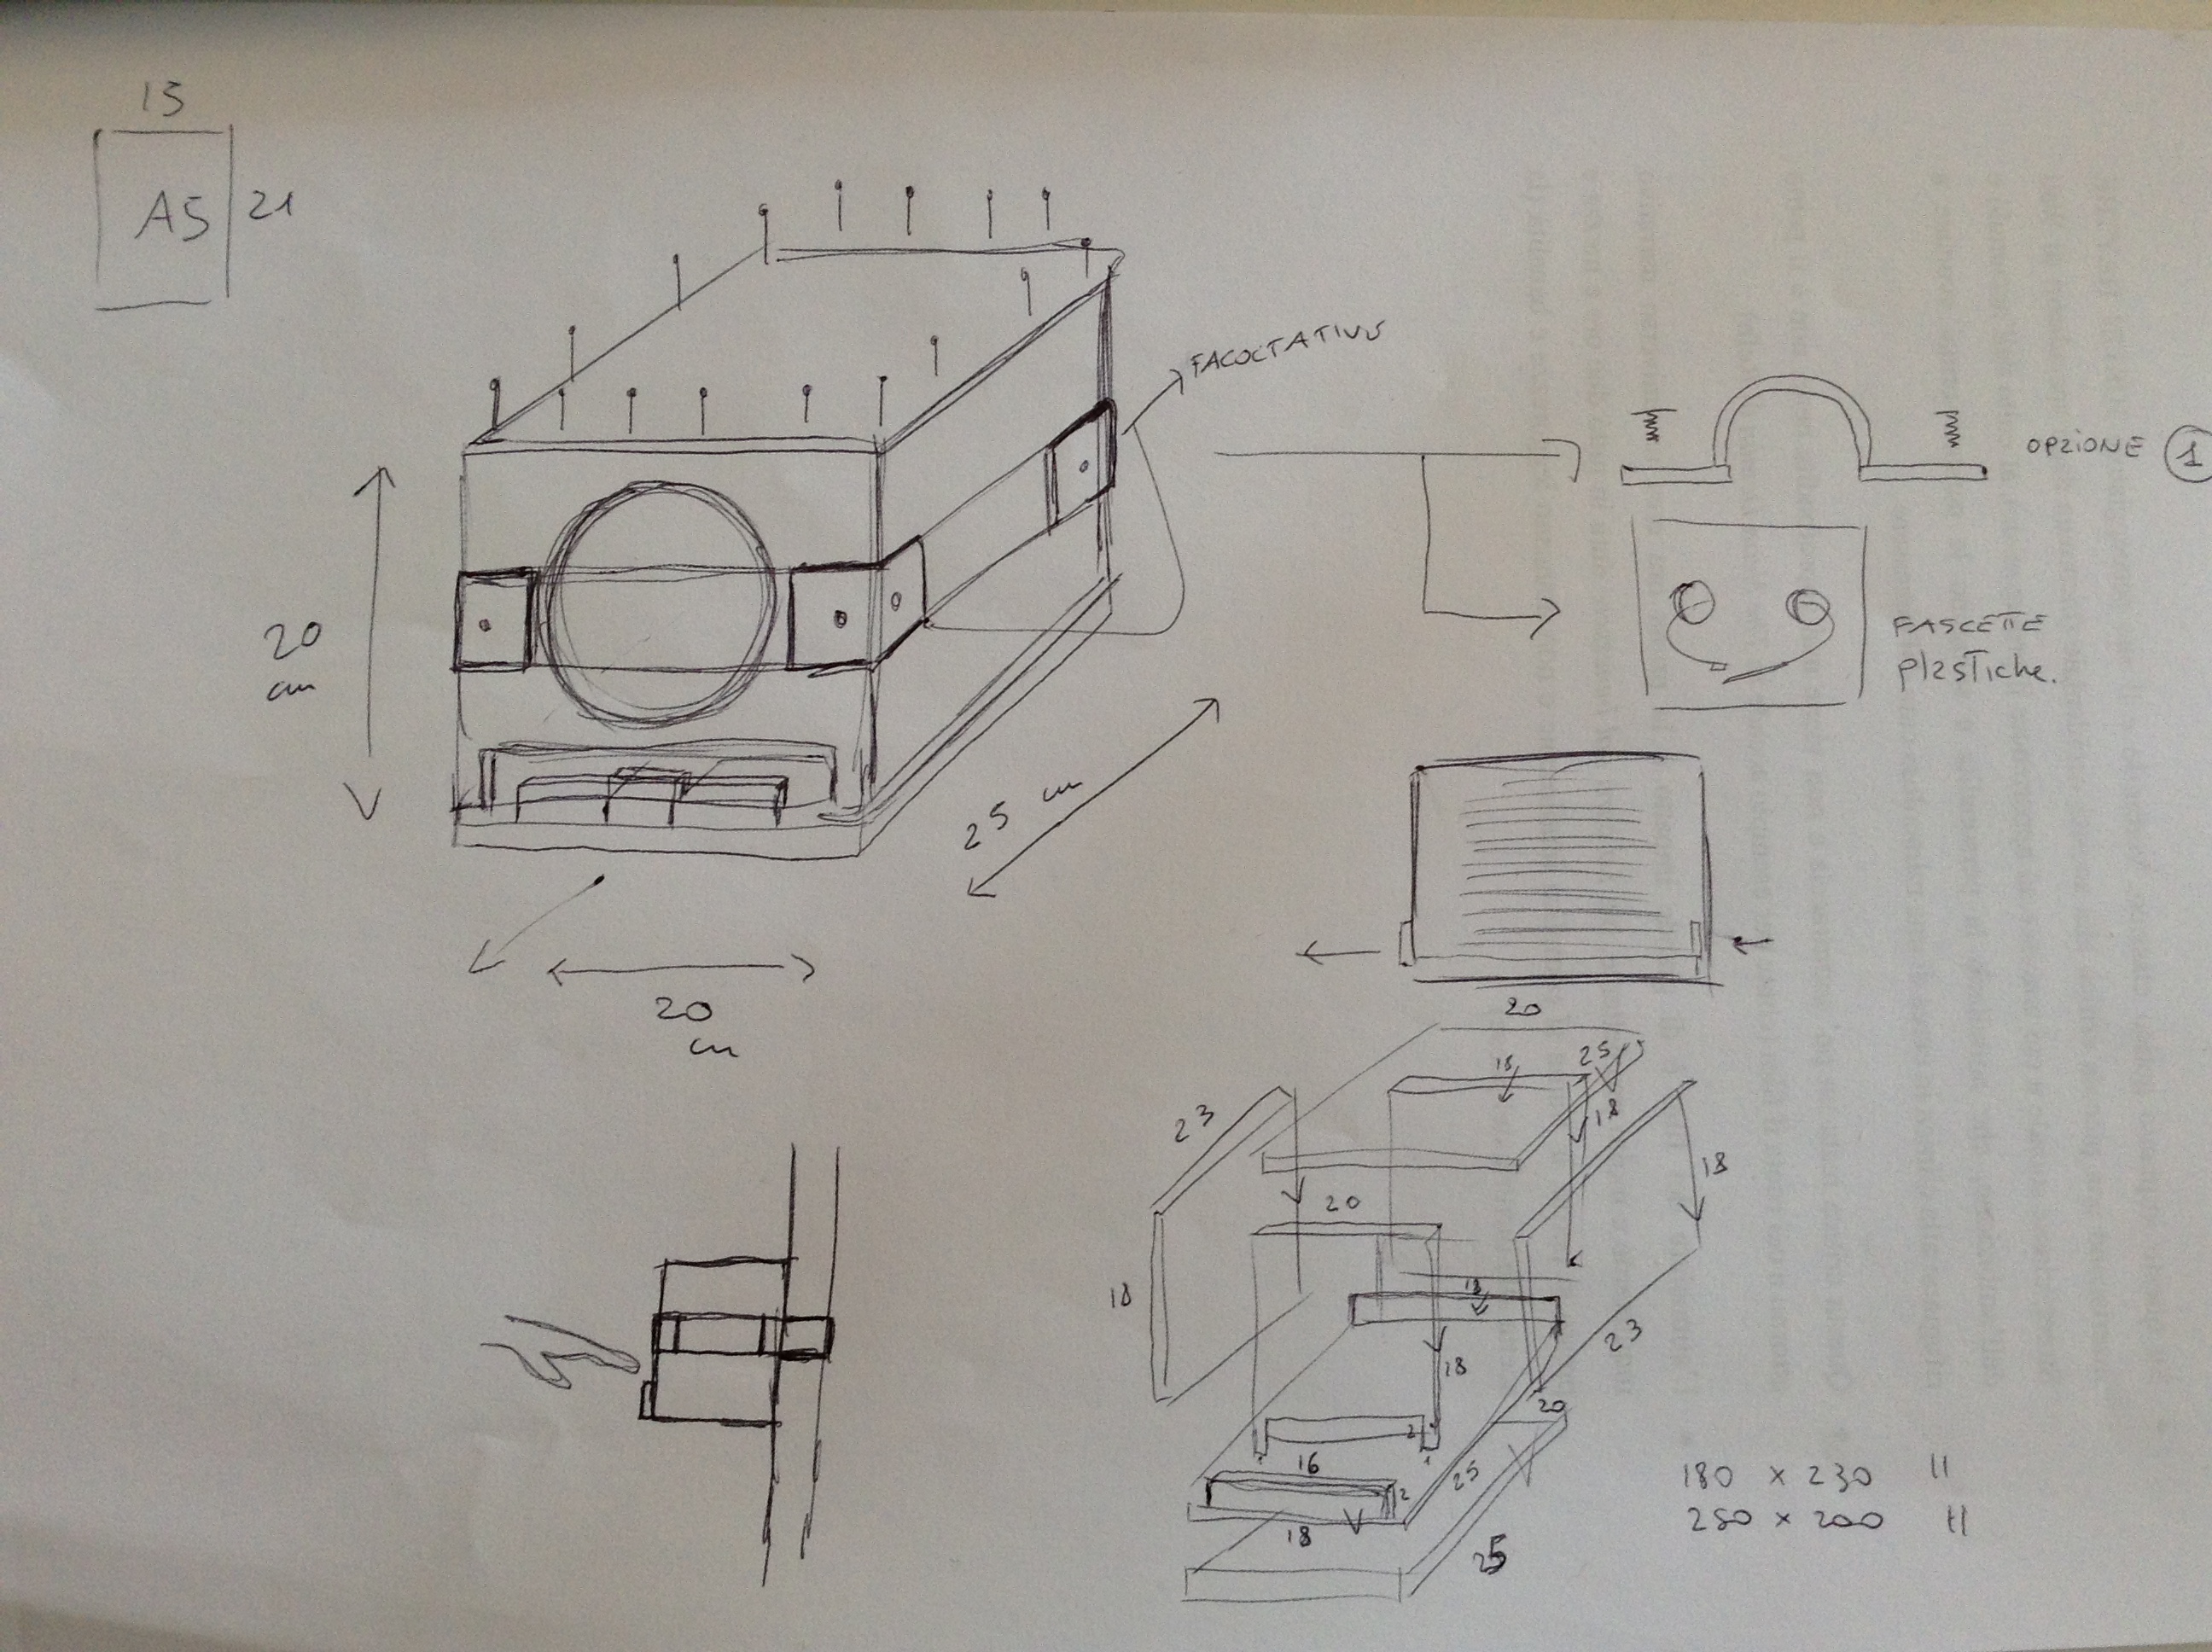 15
A5
21
FACOLTATIVO
OPZIONE 1
FASCETTE
plastiche.
20
cm
25 cm
20
cm
20
18
25
23
18
18
20
18
18
23
18
2
20
16
25
2
18
25
180 x 230 II
250 x 200 II